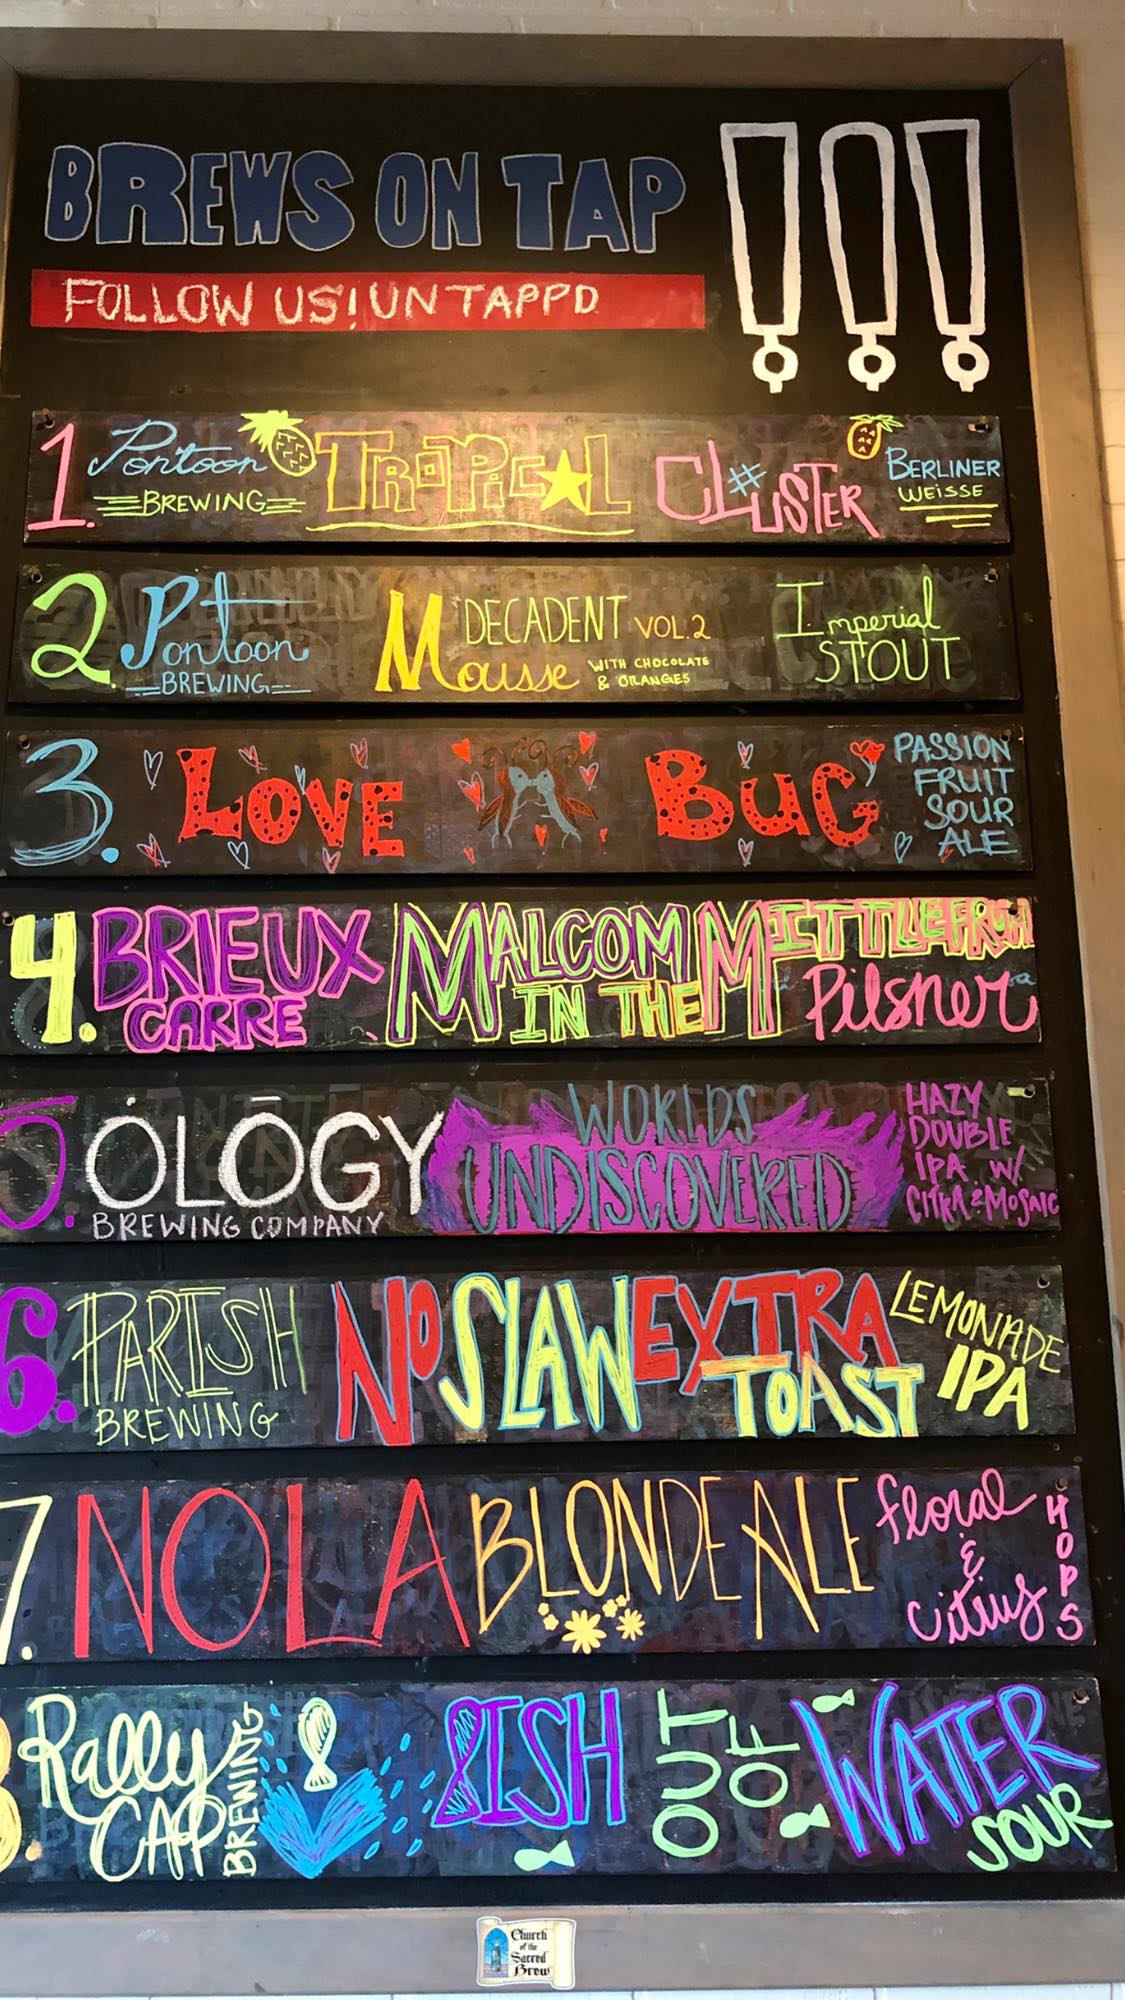 BREWS ON TAP !!!
FOLLOW US! UNTAPPD
1. Pontoon BREWING TROPICAL CL#USTER BERLINER WEISSE
2. Pontoon BREWING DECADENT Mousse VOL.2 WITH CHOCOLATE & ORANGES Imperial STOUT
3. LOVE BUG PASSION FRUIT SOUR ALE
4. BRIEUX CARRE MALCOM IN THE MITTLEFRUH Pilsner
5. OLOGY BREWING COMPANY WORLDS UNDISCOVERED HAZY DOUBLE IPA W/ CITRA & MOSAIC
6. PARISH BREWING NO SLAW EXTRA TOAST LEMONADE IPA
7. NOLA BLONDE ALE floral & citrus HOPS
8. Rally CAP BREWING FISH OUT OF WATER SOUR
Church of the Sacred Brew